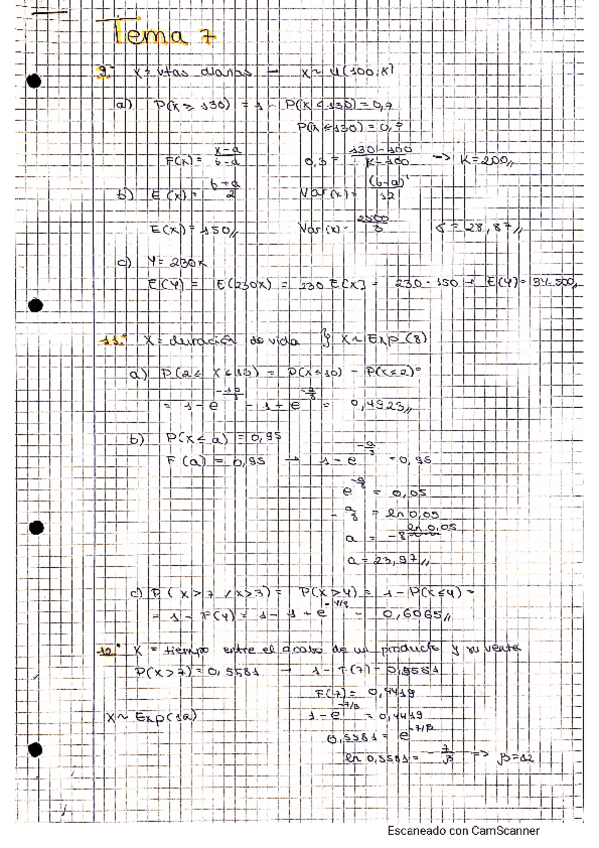 Tema 7
9.- X = vtas diarias → X ~ U(100, K)
a) P(X ≥ 130) = 1 - P(X < 130) = 0,7
P(X ≤ 130) = 0,3
F(X) = (x-a)/(b-a) 0,3 = (130-100)/(K-100) → K = 200//
b) E(X) = (b+a)/2 Var(x) = (b-a)²/12
E(X) = 150// Var(x) = 2500/3 σ = 28,87//
c) Y = 230X
E(Y) = E(230X) = 230 E[X] = 230 · 150 → E(Y) = 34.500//
11.- X = duración de vida } X ~ Exp(8)
a) P(2 ≤ X ≤ 10) = P(X ≤ 10) - P(X ≤ 2) =
= 1 - e^(-10/8) - 1 + e^(-2/8) = 0,4923//
b) P(X ≤ a) = 0,95
F(a) = 0,95 → 1 - e^(-a/8) = 0,95
e^(-a/8) = 0,05
-a/8 = ln 0,05
a = -8 ln 0,05
a = 23,97//
c) P(X > 7 / X > 3) = P(X > 4) = 1 - P(X ≤ 4) =
= 1 - F(4) = 1 - 1 + e^(-4/8) = 0,6065//
12.- X = tiempo entre el acabo de un producto y su venta
P(X > 7) = 0,5581 → 1 - F(7) = 0,5581
F(7) = 0,4419
X ~ Exp(12) 1 - e^(-7/β) = 0,4419
0,5581 = e^(-7/β)
ln 0,5581 = -7/β => β = 12
Escaneado con CamScanner